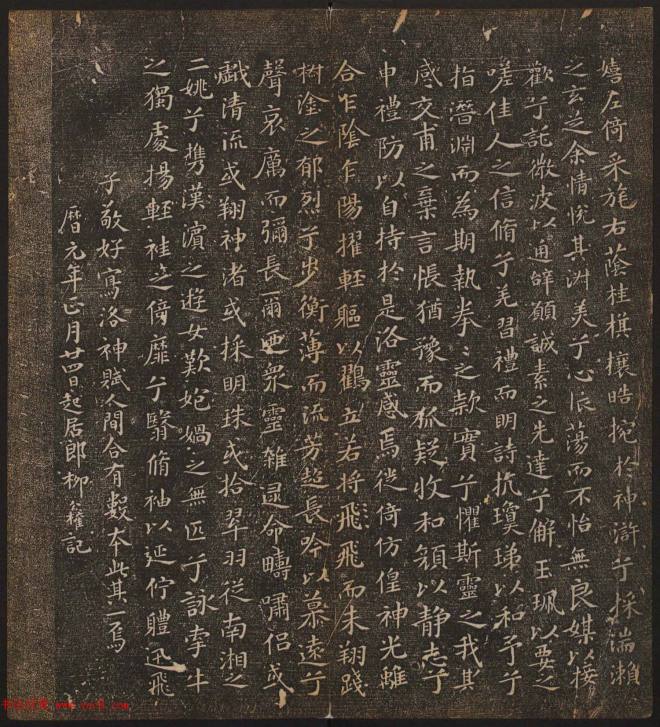 嬉左倚采旄右蔭桂棋攘皓捥於神滸兮採湍瀨
之玄芝余情悅其淑美兮心振蕩而不怡無良媒以接
歡兮託微波以通辭願誠素之先達兮解玉珮以要之
嗟佳人之信脩兮羌習禮而明詩抗瓊珶以和予兮
指潛淵而為期執拳〻之款實兮懼斯靈之我其
感交甫之棄言悵猶豫而狐疑收和顏以靜志兮
申禮防以自持於是洛靈感焉徙倚仿偟神光離
合乍陰乍陽擢輕軀以鶴立若將飛飛而未翔踐
椒塗之郁烈兮步衡薄而流芳超長吟以慕遠兮
聲哀厲而彌長爾迺眾靈雜遝命疇嘯侶或
戲清流或翔神渚或採明珠或拾翠羽從南湘之
二姚兮攜漢濱之遊女歎匏媧之無匹兮詠牽牛
之獨處揚輕袿之倚靡兮翳脩袖以延佇體迅飛
子敬好寫洛神賦人間合有數本此其一焉
曆元年正月廿四日起居郎柳公權記